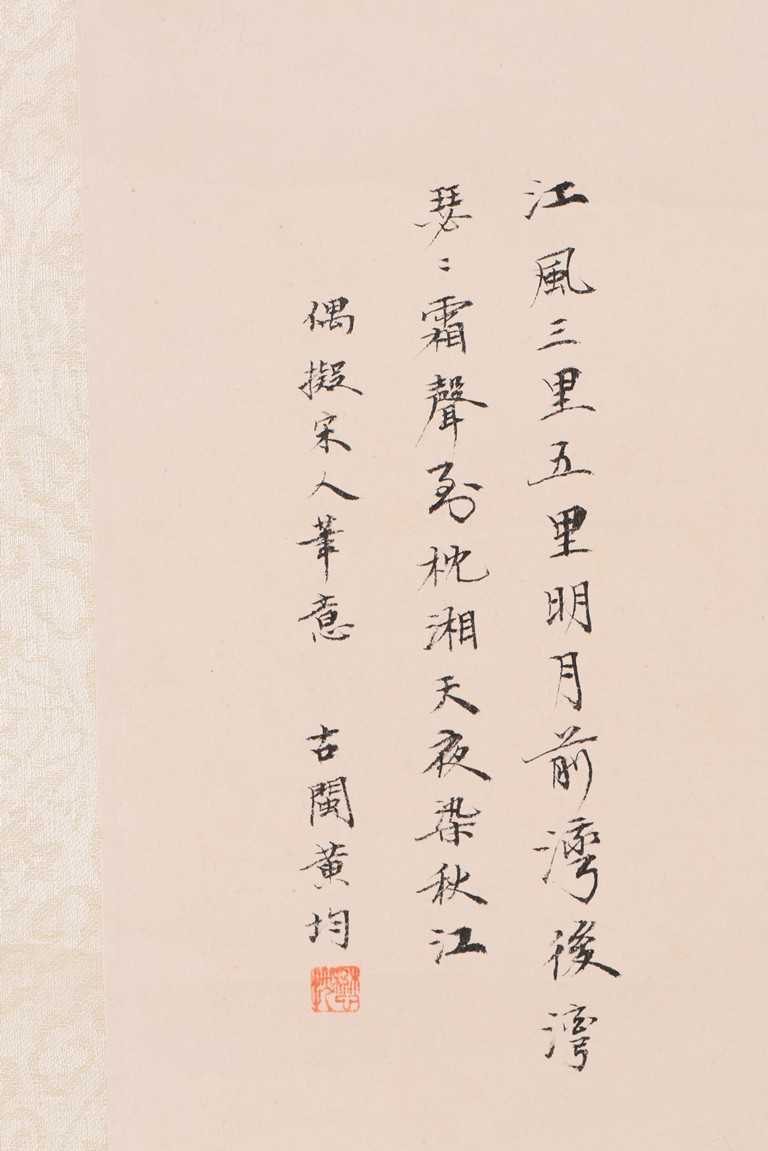 江風三里五里明月前灣後灣
瑟〻霜聲到枕湘天夜染秋江
偶擬宋人筆意 古閩黃均